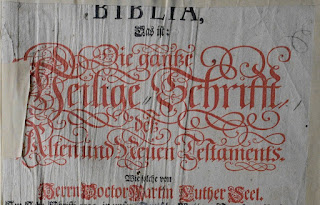 BIBLIA,
Das ist:
Die gantze
Heilige Schrifft
des
Alten und Neuen Testaments.
Wie solche von
Herrn Doctor Martin Luther Seel.